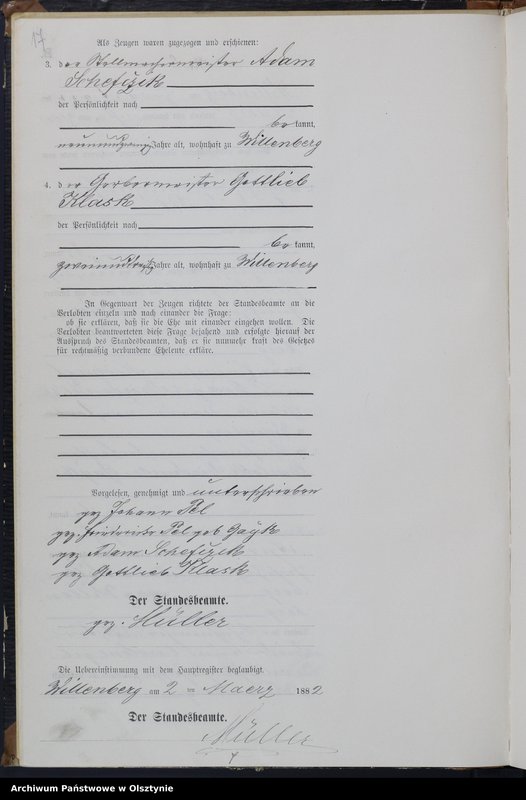 17
Als Zeugen waren zugezogen und erschienen:
3. der Stellmachermeister Adam
Schefizik
der Persönlichkeit nach
be kannt,
Jahre alt, wohnhaft zu Willenberg
4. der Gerbermeister Gottlieb
Klask
der Persönlichkeit nach
be kannt,
Jahre alt, wohnhaft zu Willenberg
In Gegenwart der Zeugen richtete der Standesbeamte an die
Verlobten einzeln und nach einander die Frage:
ob sie erklären, daß sie die Ehe mit einander eingehen wollen. Die
Verlobten beantworteten diese Frage bejahend und erfolgte hierauf der
Ausspruch des Standesbeamten, daß er sie nunmehr kraft des Gesetzes
für rechtmäßig verbundene Eheleute erkläre.
Vorgelesen, genehmigt und unterschrieben
gez Johann Pel
gez. Friederike Pel geb Gayk
gez Adam Schefizik
gez Gottlieb Klask
Der Standesbeamte.
gez. Müller
Die Uebereinstimmung mit dem Hauptregister beglaubigt.
Willenberg am 2 ten Maerz 1882
Der Standesbeamte.
Müller
Archiwum Państwowe w Olsztynie